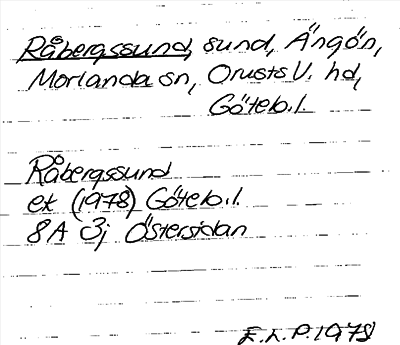 Råbergssund, sund, Ängön,
Morlanda sn, Orusts V. hd,
Göteb.l.
Råbergssund
ek (1978) Göteb.l.
8A 3j Östersidan
E.L.P.1978